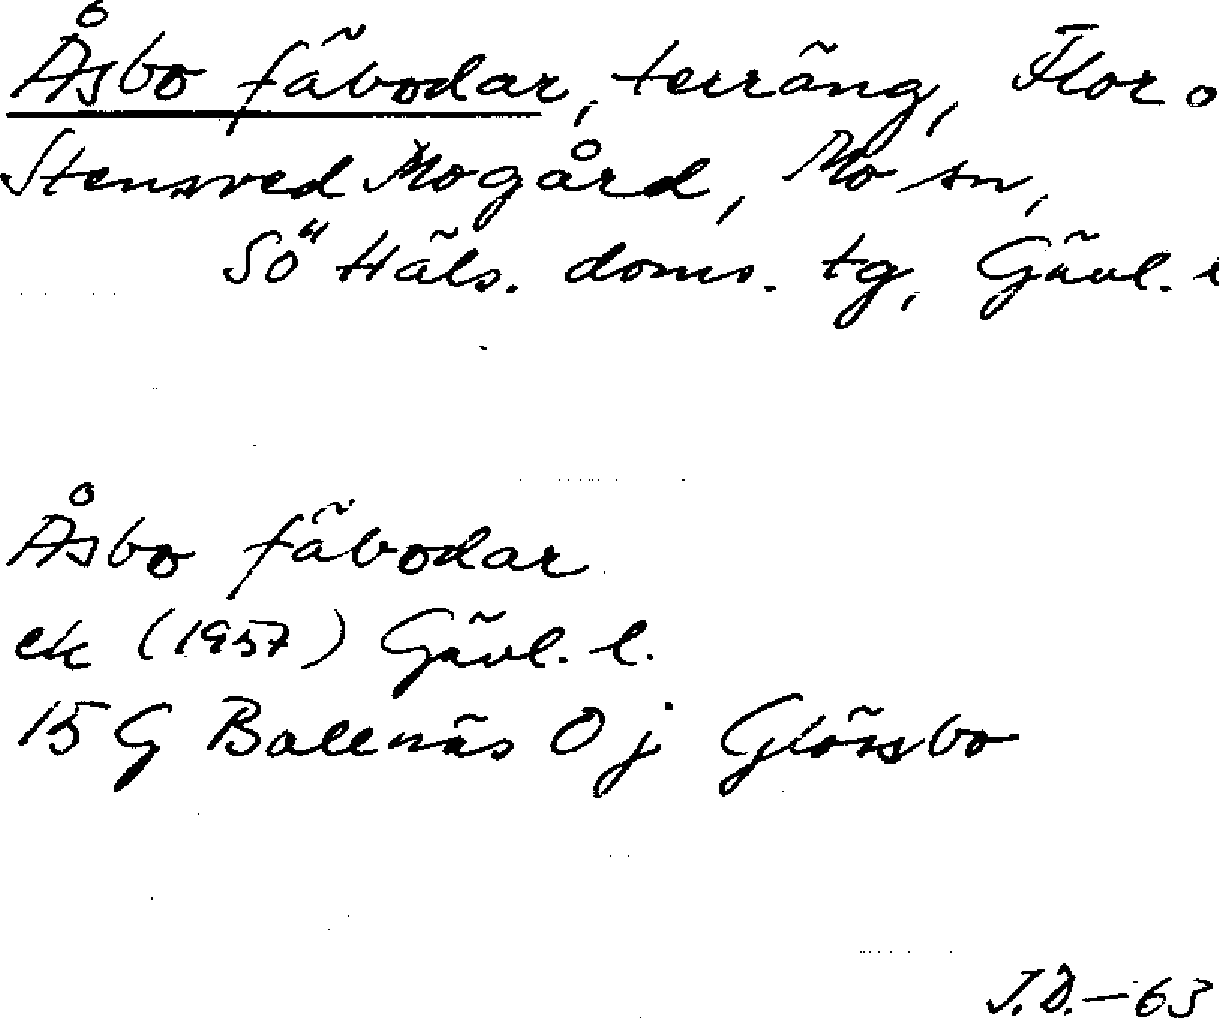 Åsbo fäbodar, terräng, Flor o
Stensved Mogård, Mo sn,
Sö Häls. doms. tg, Gävl. l
Åsbo fäbodar
ek (1957) Gävl. l.
15 G Bollnäs 0 j Glössbo
J.D.-63